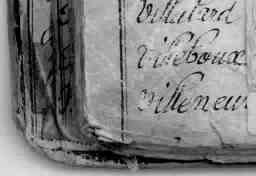 Villatard
Villeboux
Villeneuv